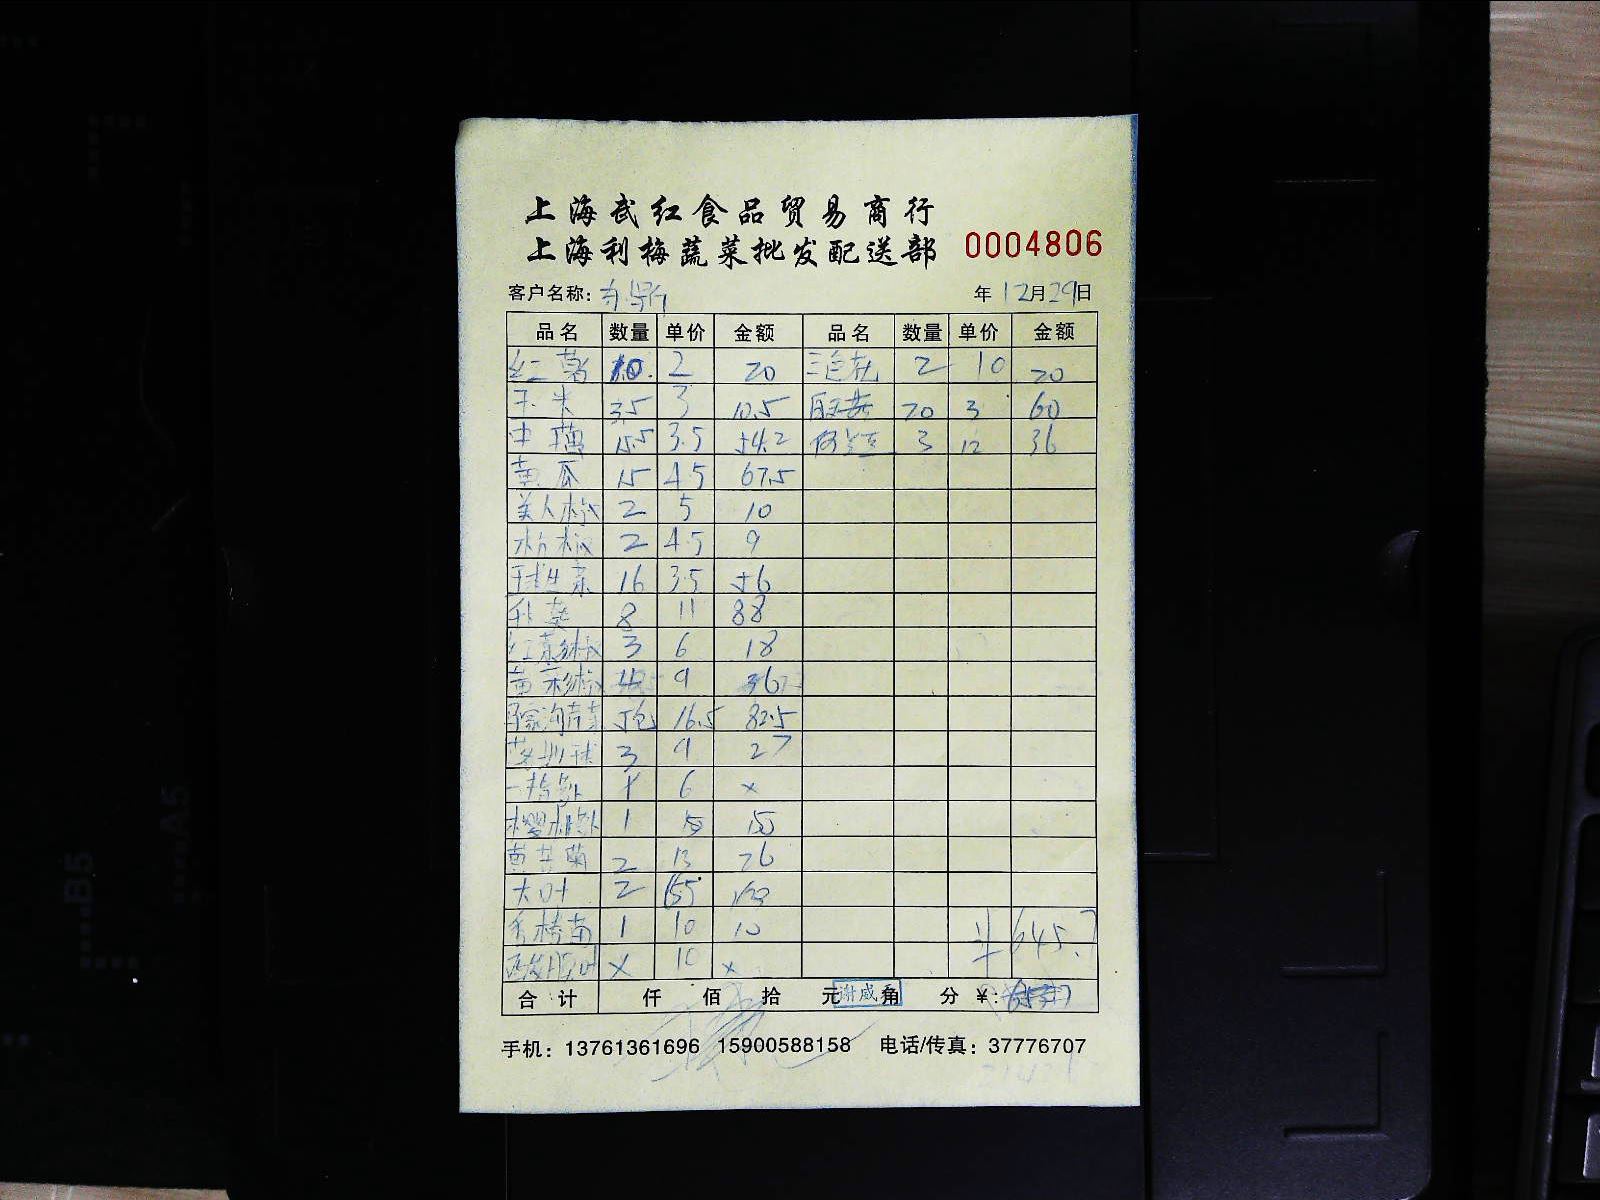 上海武红食品贸易商行
上海利梅蔬菜批发配送部 0004806
客户名称: 年12月29日
品名 数量 单价 金额 品名 数量 单价 金额
红薯 10. 2 20 三色花 2 10 20
玉米 3.5 3 10.5 20 3 60
15.5 3.5 54.2 3 12 36
黄瓜 15 4.5 67.5
美人椒 2 5 10
杭椒 2 4.5 9
球生菜 16 3.5 56
秋葵 8 11 88
红彩椒 3 6 18
黄彩椒 4 9 36
马家沟芹菜 5包 16.5 82.5
3 9 27
6 ×
樱桃 1 15 15
2 13 26
大叶 2
1 10 10
× 10 ×
645.7
合计 仟 佰 拾 元 角 分 ¥:
谢威
手机: 13761361696 15900588158 电话/传真: 37776707
B5
A5